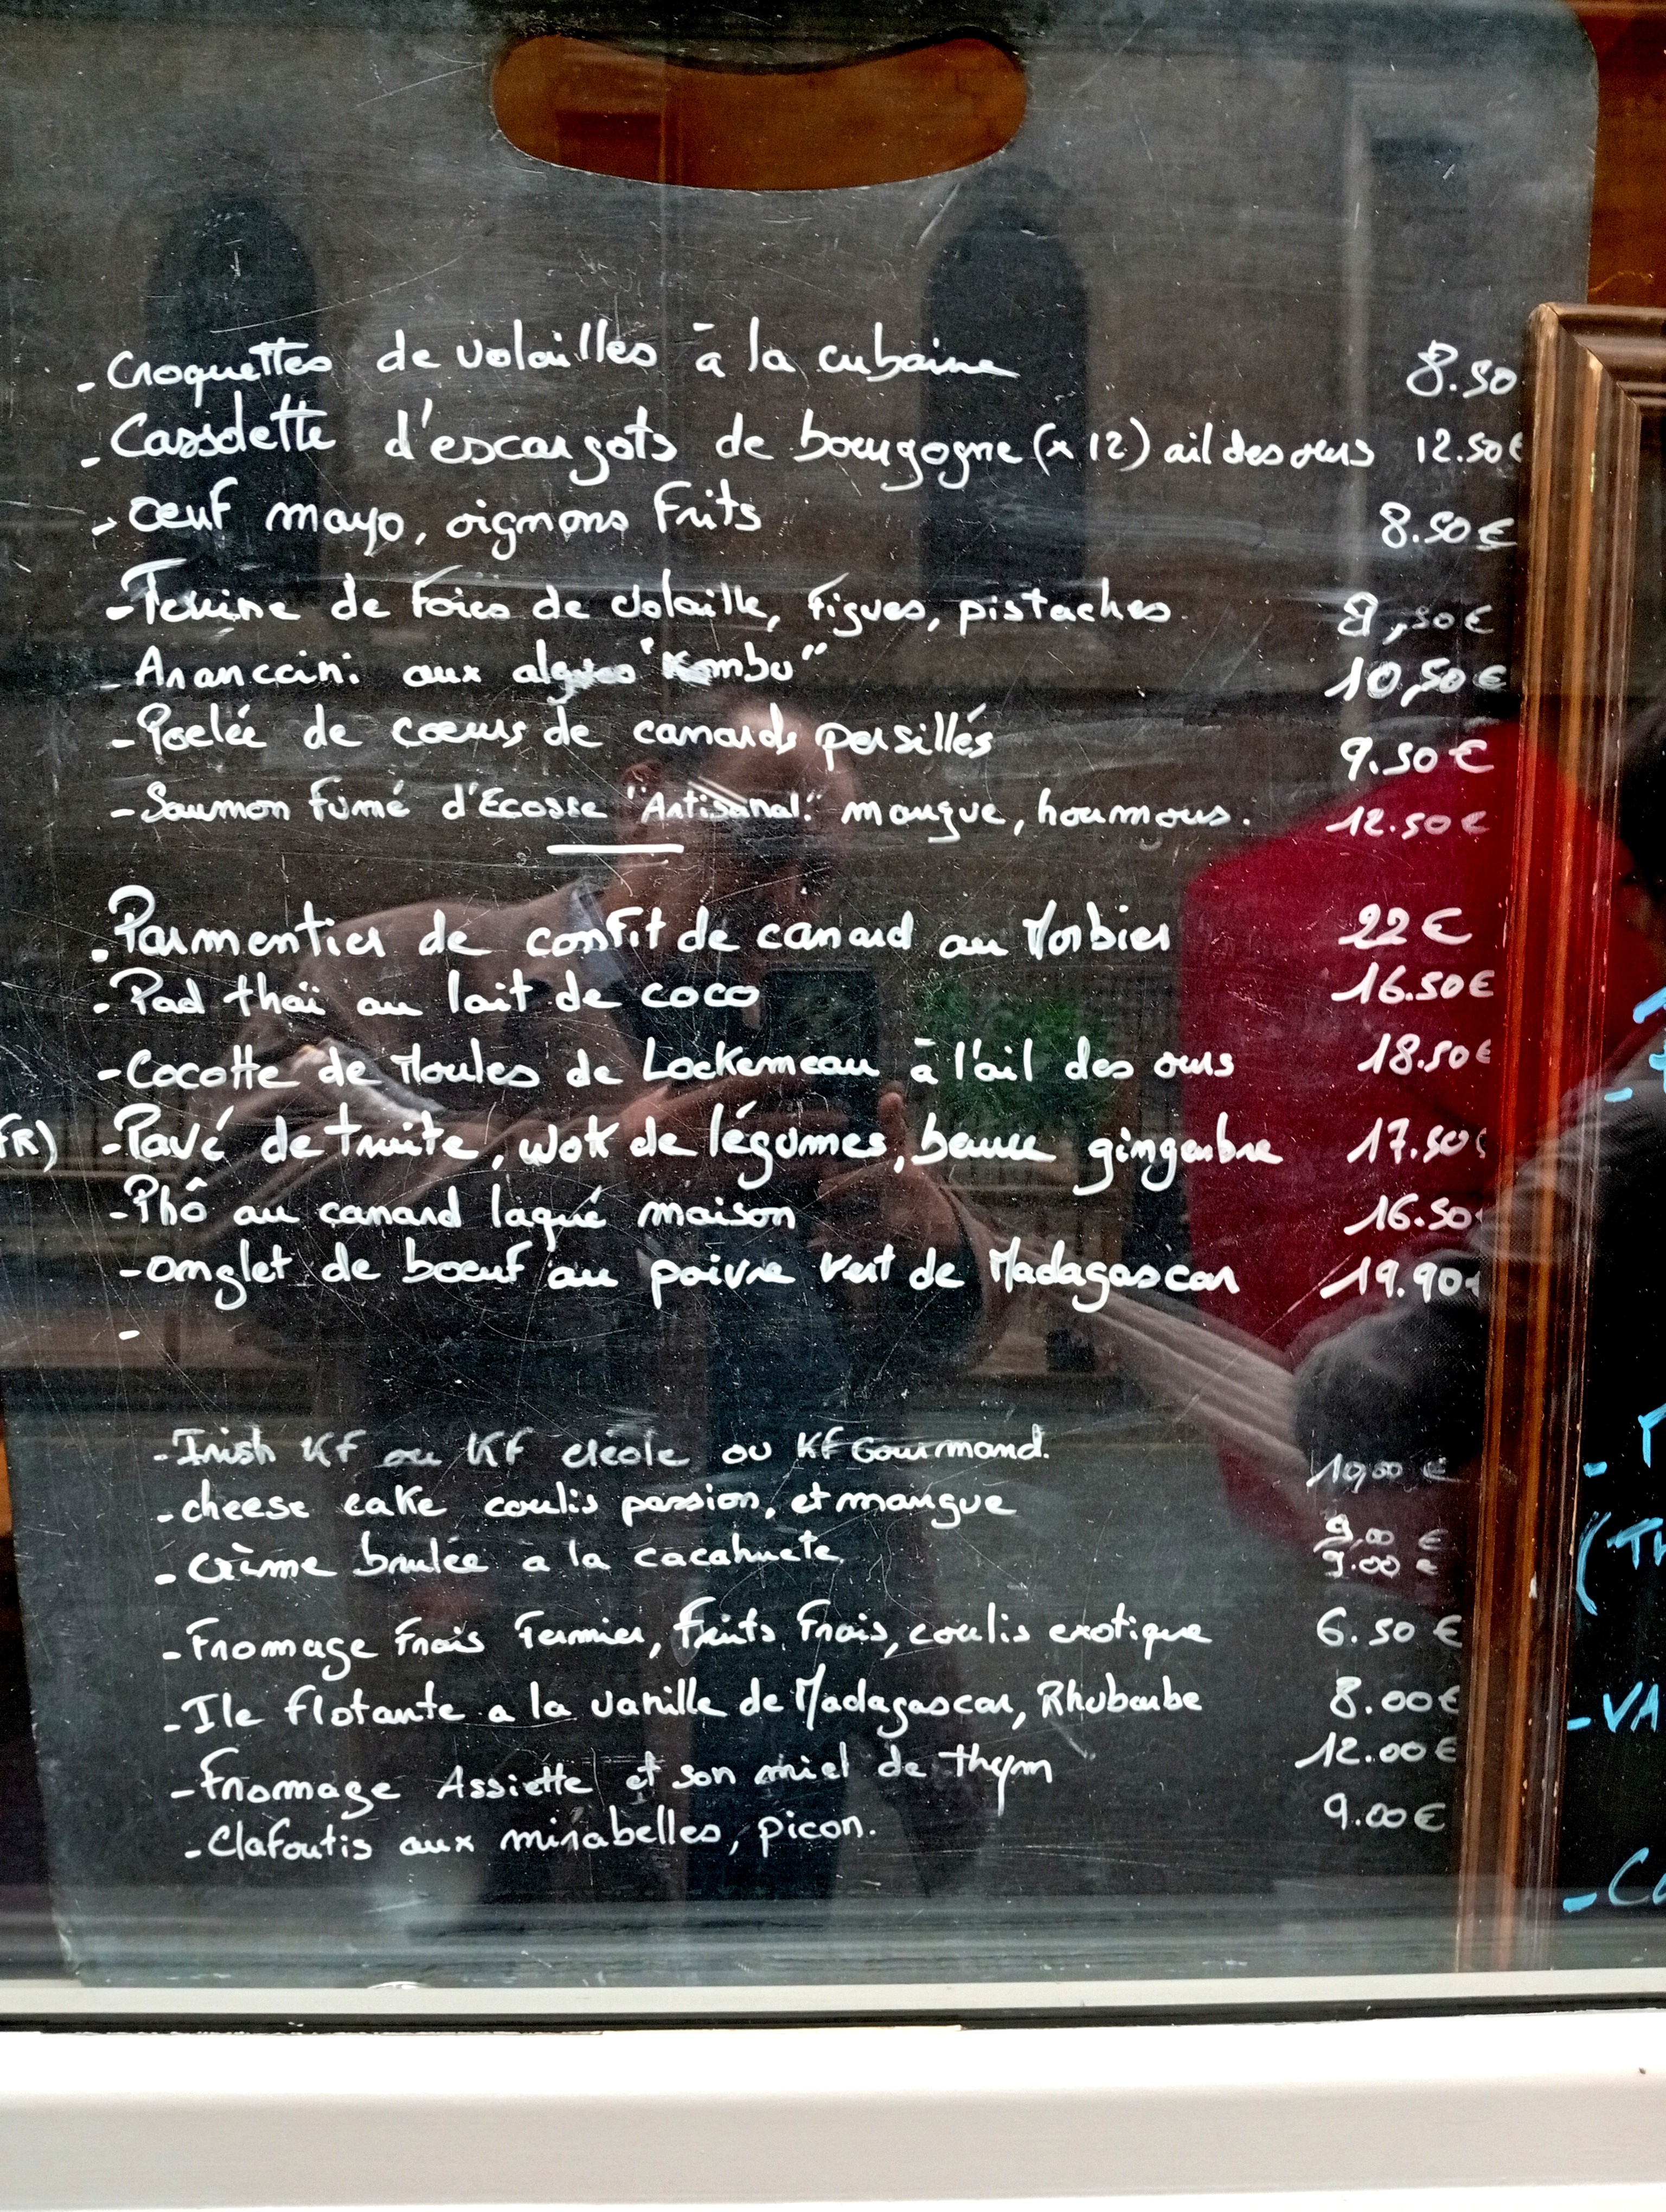 - Croquettes de volailles à la cubaine 8.50
- Cassolette d'escargots de bourgogne (x 12) ail des ours 12.50€
- Œuf mayo, oignons frits 8.50€
- Terrine de Foies de volaille, Figues, pistaches. 8,50€
- Aranccini aux algues "Kombu" 10,50€
- Poelée de cœurs de canards persillés 9.50€
- Saumon fumé d'Ecosse "Artisanal." mangue, houmous. 12.50€
- Parmentier de confit de canard au Morbier 22€
- Pad thaï au lait de coco 16.50€
- Cocotte de Moules de Lockemeau à l'ail des ours 18.50€
FR) - Pavé de truite, wok de légumes, beurre gingembre 17.50€
- Phô au canard laqué maison 16.50€
- onglet de bœuf au poivre vert de Madagascar 19.90€
-
- Irish KF ou KF créole ou KF Gourmand. 10,50 €
- cheese cake coulis passion, et mangue 9,00 €
- Crème brulée a la cacahuete 9.00 €
- Fromage Frais Fermier, Fruits Frais, coulis exotique 6.50 €
- Ile flotante a la vanille de Madagascar, Rhubarbe 8.00€
- Fromage Assiette et son miel de thym 12.00€
- Clafoutis aux mirabelles, picon. 9.00€
(TH
- VA